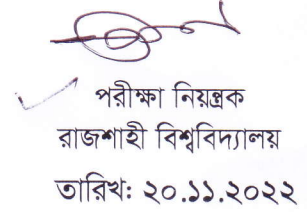 পরীক্ষা নিয়ন্ত্রক
রাজশাহী বিশ্ববিদ্যালয়
তারিখ: ২০.১১.২০২২